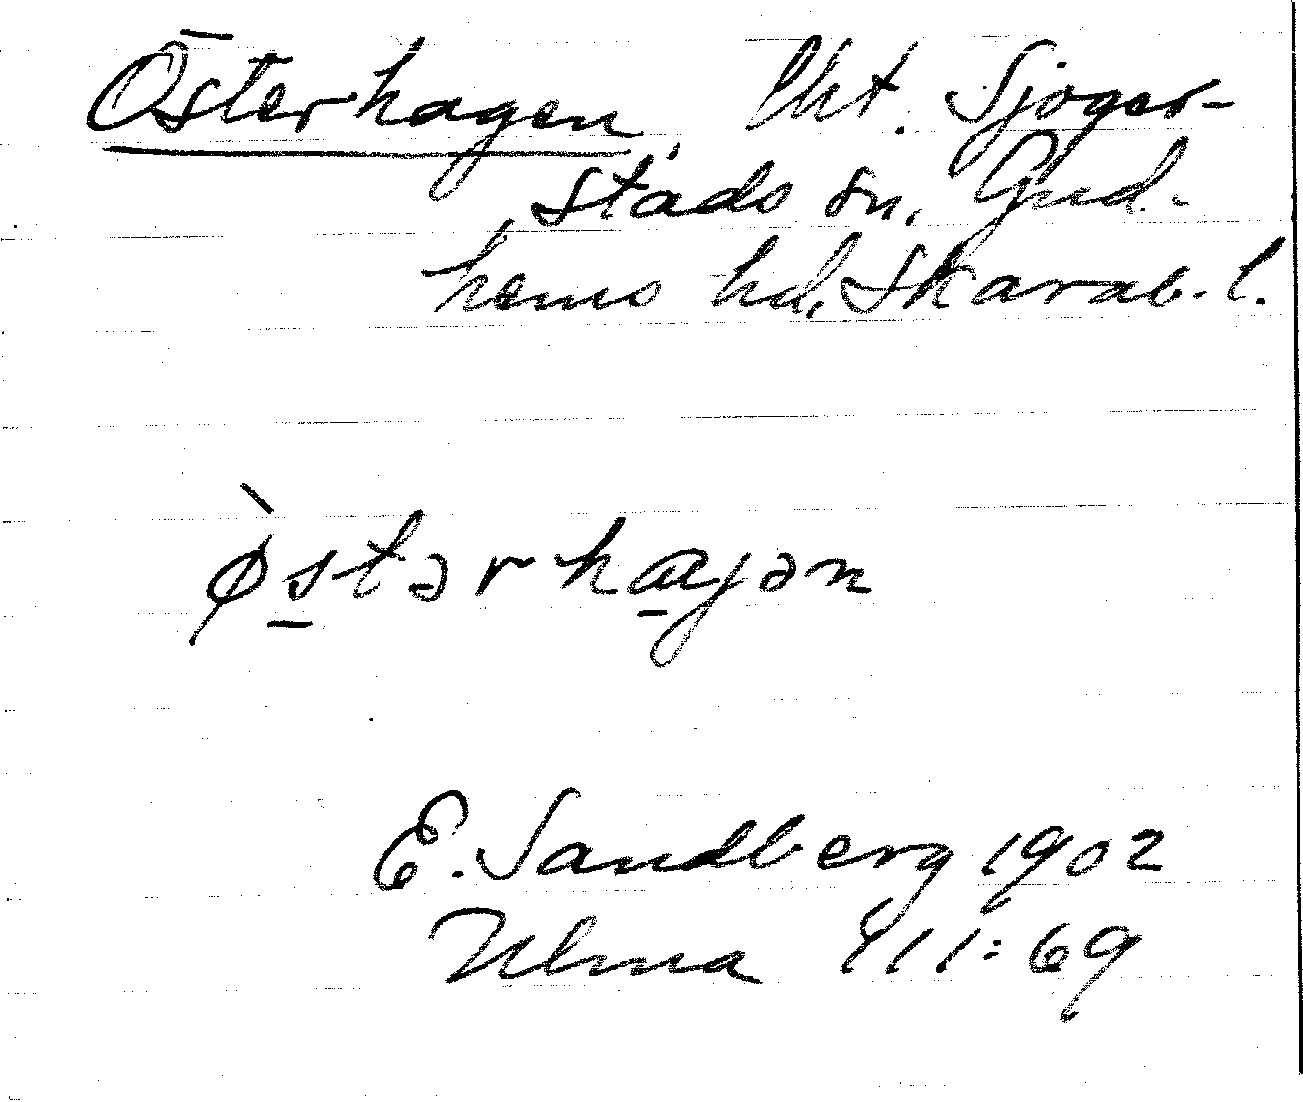 Österhagen, lht. Sjöger-
stads sn. Gud-
hems hd, Skarab. l.
ø̀stərhajən
E. Sandberg 1902
Ulma 111:69